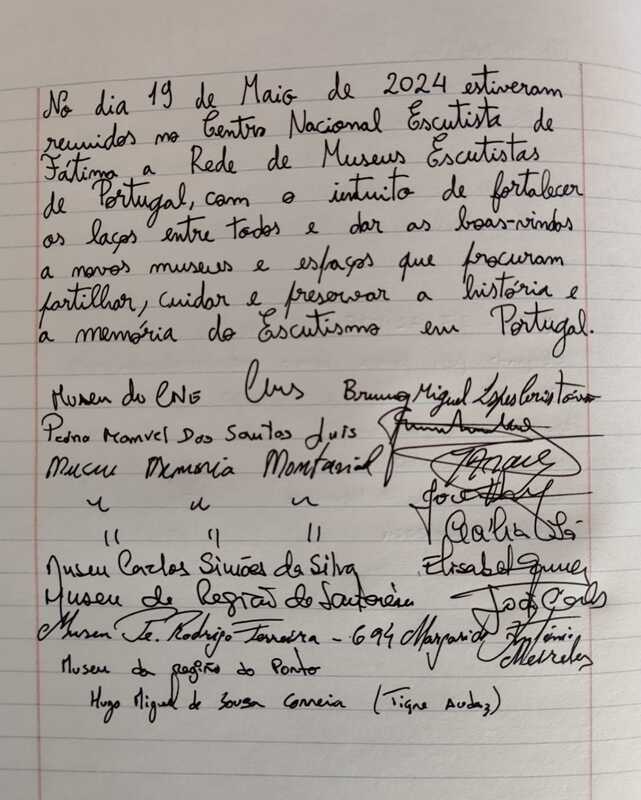 No dia 19 de Maio de 2024 estiveram
reunidos no Centro Nacional Escutista de
Fátima a Rede de Museus Escutistas
de Portugal, com o intuito de fortalecer
os laços entre todos e dar as boas-vindas
a novos museus e espaços que procuram
partilhar, cuidar e preservar a história e
a memória do Escutismo em Portugal.
Museu do CNE Bruno Miguel Lopes Cristóvão
Pedro Manuel Dos Santos Luis
Museu Memoria
" " "
" " "
Museu Carlos Simões da Silva Elisabel
Museu da Região de Santarém João
Museu Fe. Rodrigo Ferreira - 694 Margarida António
Meireles
Museu da região do Porto
Hugo Miguel de Sousa Correia (Tigre Audaz)